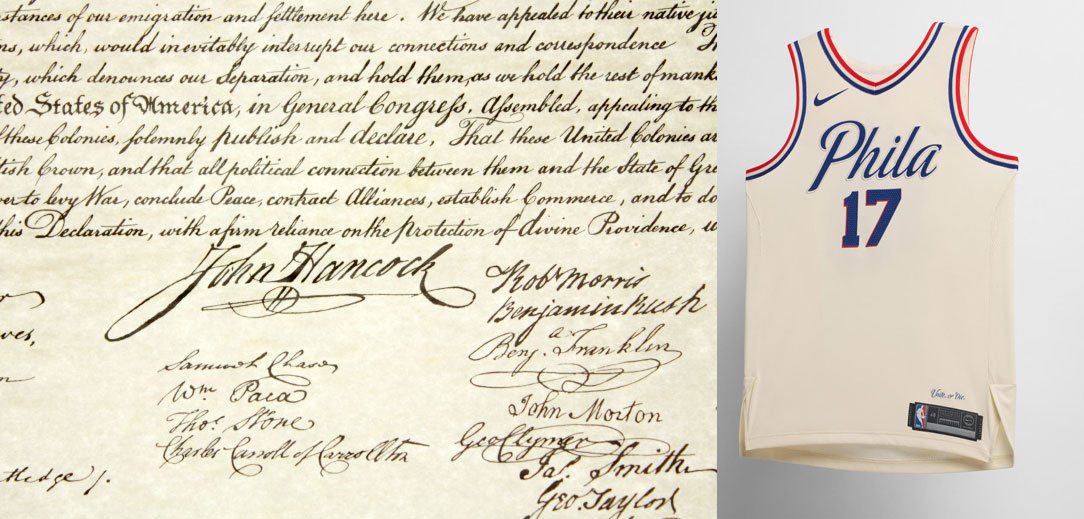 stances of our emigration and settlement here . We have appealed to their native ju
ns, which, would inevitably interrupt our connections and correspondence
ty, which denounces our Separation, and hold them, as we hold the rest of mank
ted States of America, in General Congress, Assembled, appealing to th
f these Colonies, solemnly publish and declare, That these United Colonies ar
tish Crown, and that all political connection between them and the State of Gre
ver to levy War, conclude Peace, contract Alliances, establish Commerce, and to do
this Declaration, with a firm reliance on the protection of divine Providence, w
John Hancock
Robt Morris
Benjamin Rush
Benja. Franklin
Samuel Chase
Wm. Paca
Thos. Stone
Charles Carroll of Carrollton
John Morton
Geo Clymer
Jas. Smith
Geo. Taylor
tledge /.
Phila
17
Unite or Die.